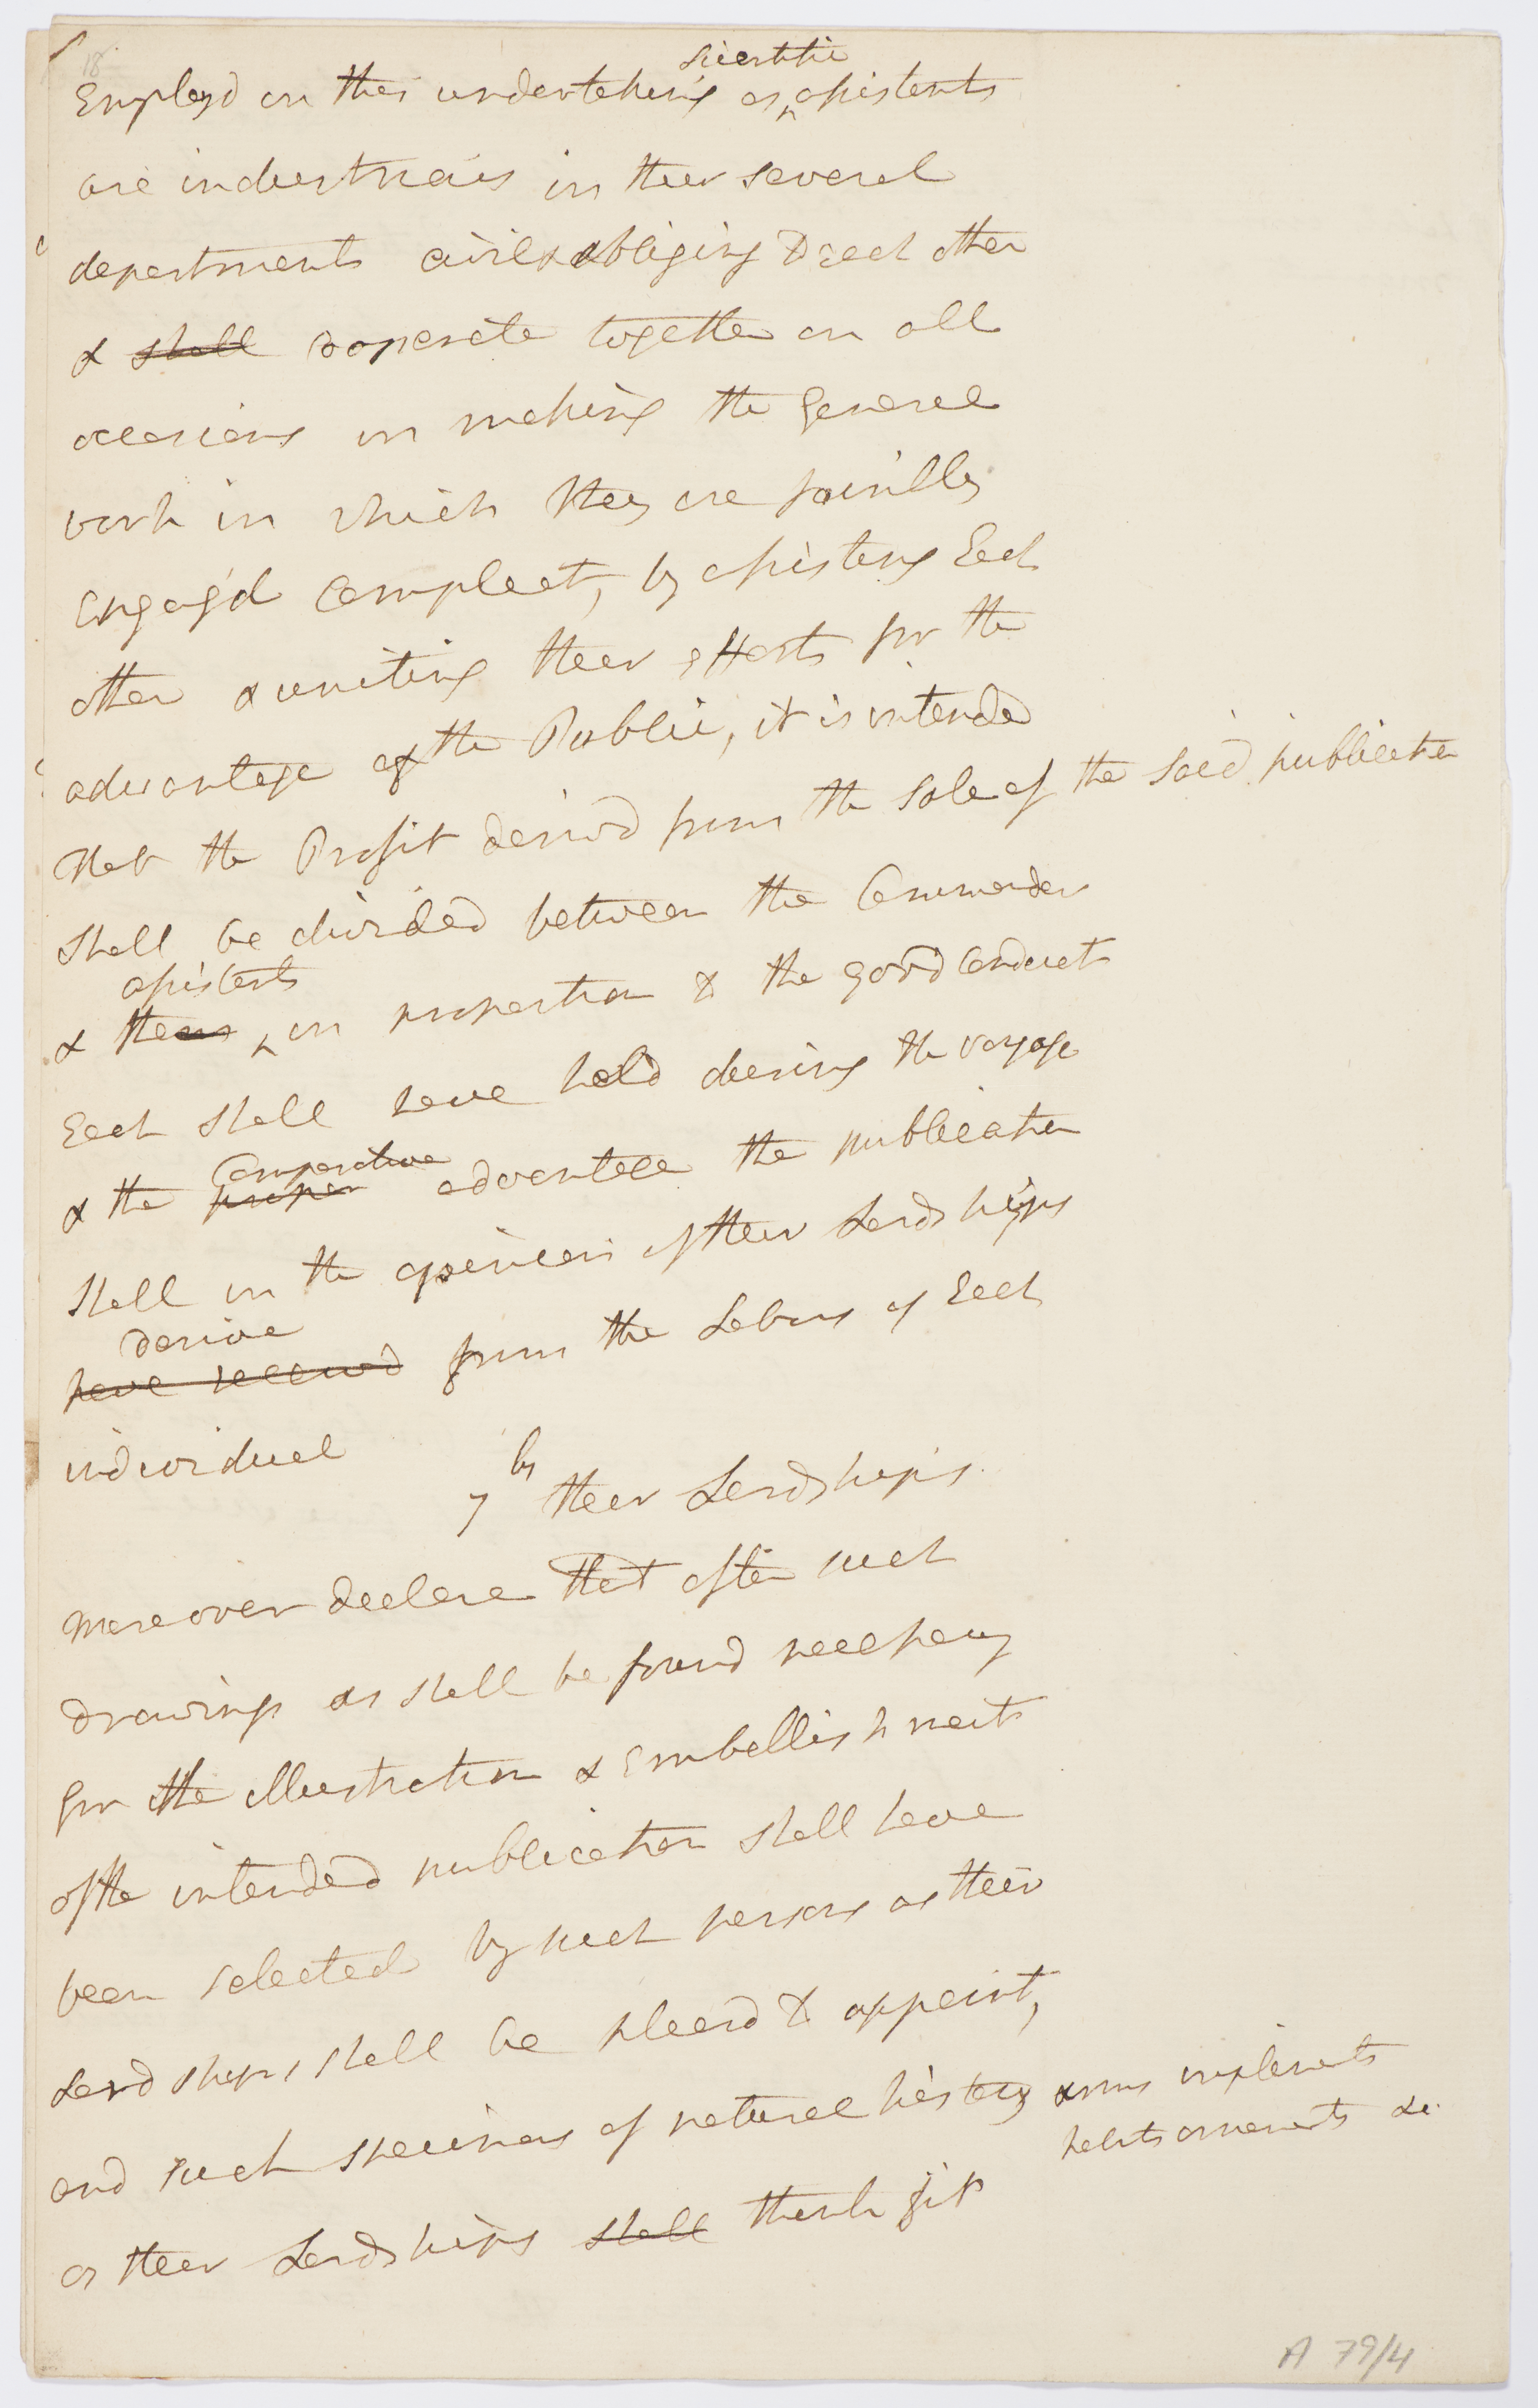 18
scientific
Employd on this undertaking as ^ assistants
are industrious in their several
departments civil & obliging to each other
& shall cooperate together on all
occasions in making the general
work in which they are jointly
Engag'd Compleat, by assisting Each
other & uniting their efforts for the
advantage of the Public, it is intended
that the Profit derivd from the sale of the said publication
shall be divided between the Commander
assistants
& them ^ in proportion to the good Conduct
Each shall have held during the voyage
Comparative
& the proper advantage the publication
shall in the opinion of their Lordships
derive
have receivd from the Labors of Each
individual
7 by their Lordships
moreover declare that after such
drawings as shall be found necessary
for the illustration & Embellishments
of the intended publication shall have
been selected by such persons as their
Lordships shall be pleasd to appoint,
and such specimens of natural history arms implements
habits ornaments &c.
as their Lordships shall think fit
A 79/4